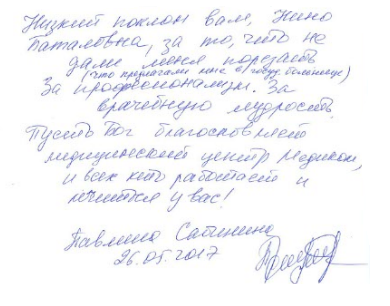 Низкий поклон вам, Нино
Паталовна, за то, что не
дали меня порезать
(что предлагали мне в госуд. больнице)
За профессионализм. За
врачебную мудрость.
Пусть Бог благословляет
медицинский центр Медиком,
и всех кто работает и
лечится у вас!
Павлина
26.05.2017